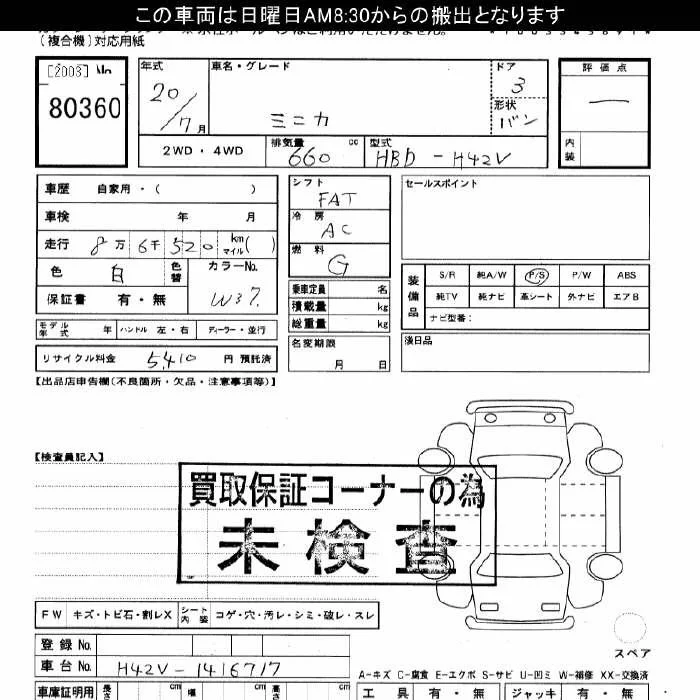 この車両は日曜日AM8:30からの搬出となります
(複合機)対応用紙
[2003] No 80360
年式 20/7月
車名・グレード ミニカ
ドア 3
形状 バン
評価点 —
内装
2WD・4WD
排気量 660 cc
型式 HBD-H42V
車歴 自家用・( )
車検 年 月
走行 8万6千520 km マイル( )
色 白 色替 カラーNo. W37.
保証書 有・無
モデル年式 年 ハンドル 左・右 ディーラー・並行
リサイクル料金 5,410 円 預託済
シフト FAT
冷房 AC
燃料 G
乗車定員 名
積載量 kg
総重量 kg
名変期限 月 日
セールスポイント
装備品 S/R 純A/W P/S P/W ABS
純TV 純ナビ 革シート 外ナビ エアB
ナビ型番:
満日品
【出品店申告欄(不良箇所・欠品・注意事項等)】
【検査員記入】
買取保証コーナーの為
未検査
FW キズ・トビ石・割レX シート内装 コゲ・穴・汚レ・シミ・破レ・スレ
登録No.
車台No. H42V-1416717
車庫証明用 長さ cm 幅 cm 高さ cm
スペア
A-キズ C-腐食 E-エクボ S-サビ U-凹ミ W-補修 XX-交換済
工具 有・無 ジャッキ 有・無